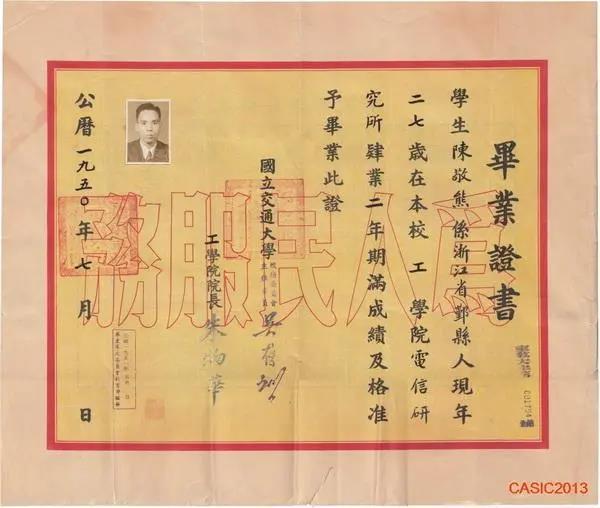 畢業證書
學生陳敬熊係浙江省鄞縣人現年
二七歲在本校 工 學院電信研
究所肄業二年期滿成績及格准
予畢業此證
國立交通大學校務委員會
主任委員 吳有訓
工學院院長 朱物華
公曆一九五〇年七月 日
為人民服務
CASIC2013